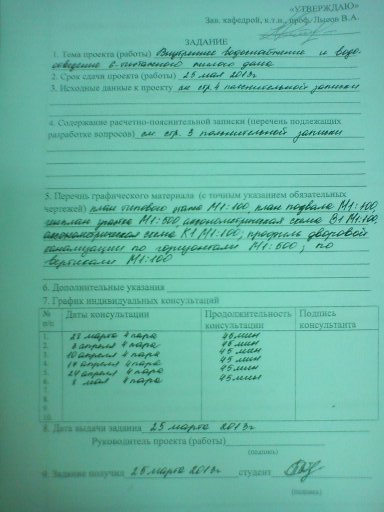 «УТВЕРЖДАЮ»
Зав. кафедрой, к.т.н., проф. Лысов В.А.
ЗАДАНИЕ
1. Тема проекта (работы) Внутреннее водоснабжение и водо-
отведение 6-этажного жилого дома
2. Срок сдачи проекта (работы) 25 мая 2013г
3. Исходные данные к проекту см стр. 4 пояснительной записки
4. Содержание расчетно-пояснительной записки (перечень подлежащих
разработке вопросов) см стр. 3 пояснительной записки
5. Перечнь графического материала (с точным указанием обязательных
чертежей) план типового этажа М1:100, план подвала М1:100,
генплан участка М1:500, аксонометрическая схема В1 М1:100,
аксонометрическая схема К1 М1:100, профиль дворовой
канализации по горизонтали М1:500; по
вертикали М1:100
6. Дополнительные указания
7. График индивидуальных консультаций
№ п/п Даты консультации Продолжительность консультации Подпись консультанта
1. 23 марта 4 пара 45 мин
2. 3 апреля 4 пара 45 мин
3. 10 апреля 4 пара 45 мин
4. апреля 4 пара 45 мин
5. 24 апреля 4 пара 45 мин
6. 8 мая 4 пара 45 мин
7.
8.
9.
10.
8. Дата выдачи задания 25 марта 2013г
Руководитель проекта (работы)
(подпись)
9. Задание получил 25 марта 2013г студент
(подпись)